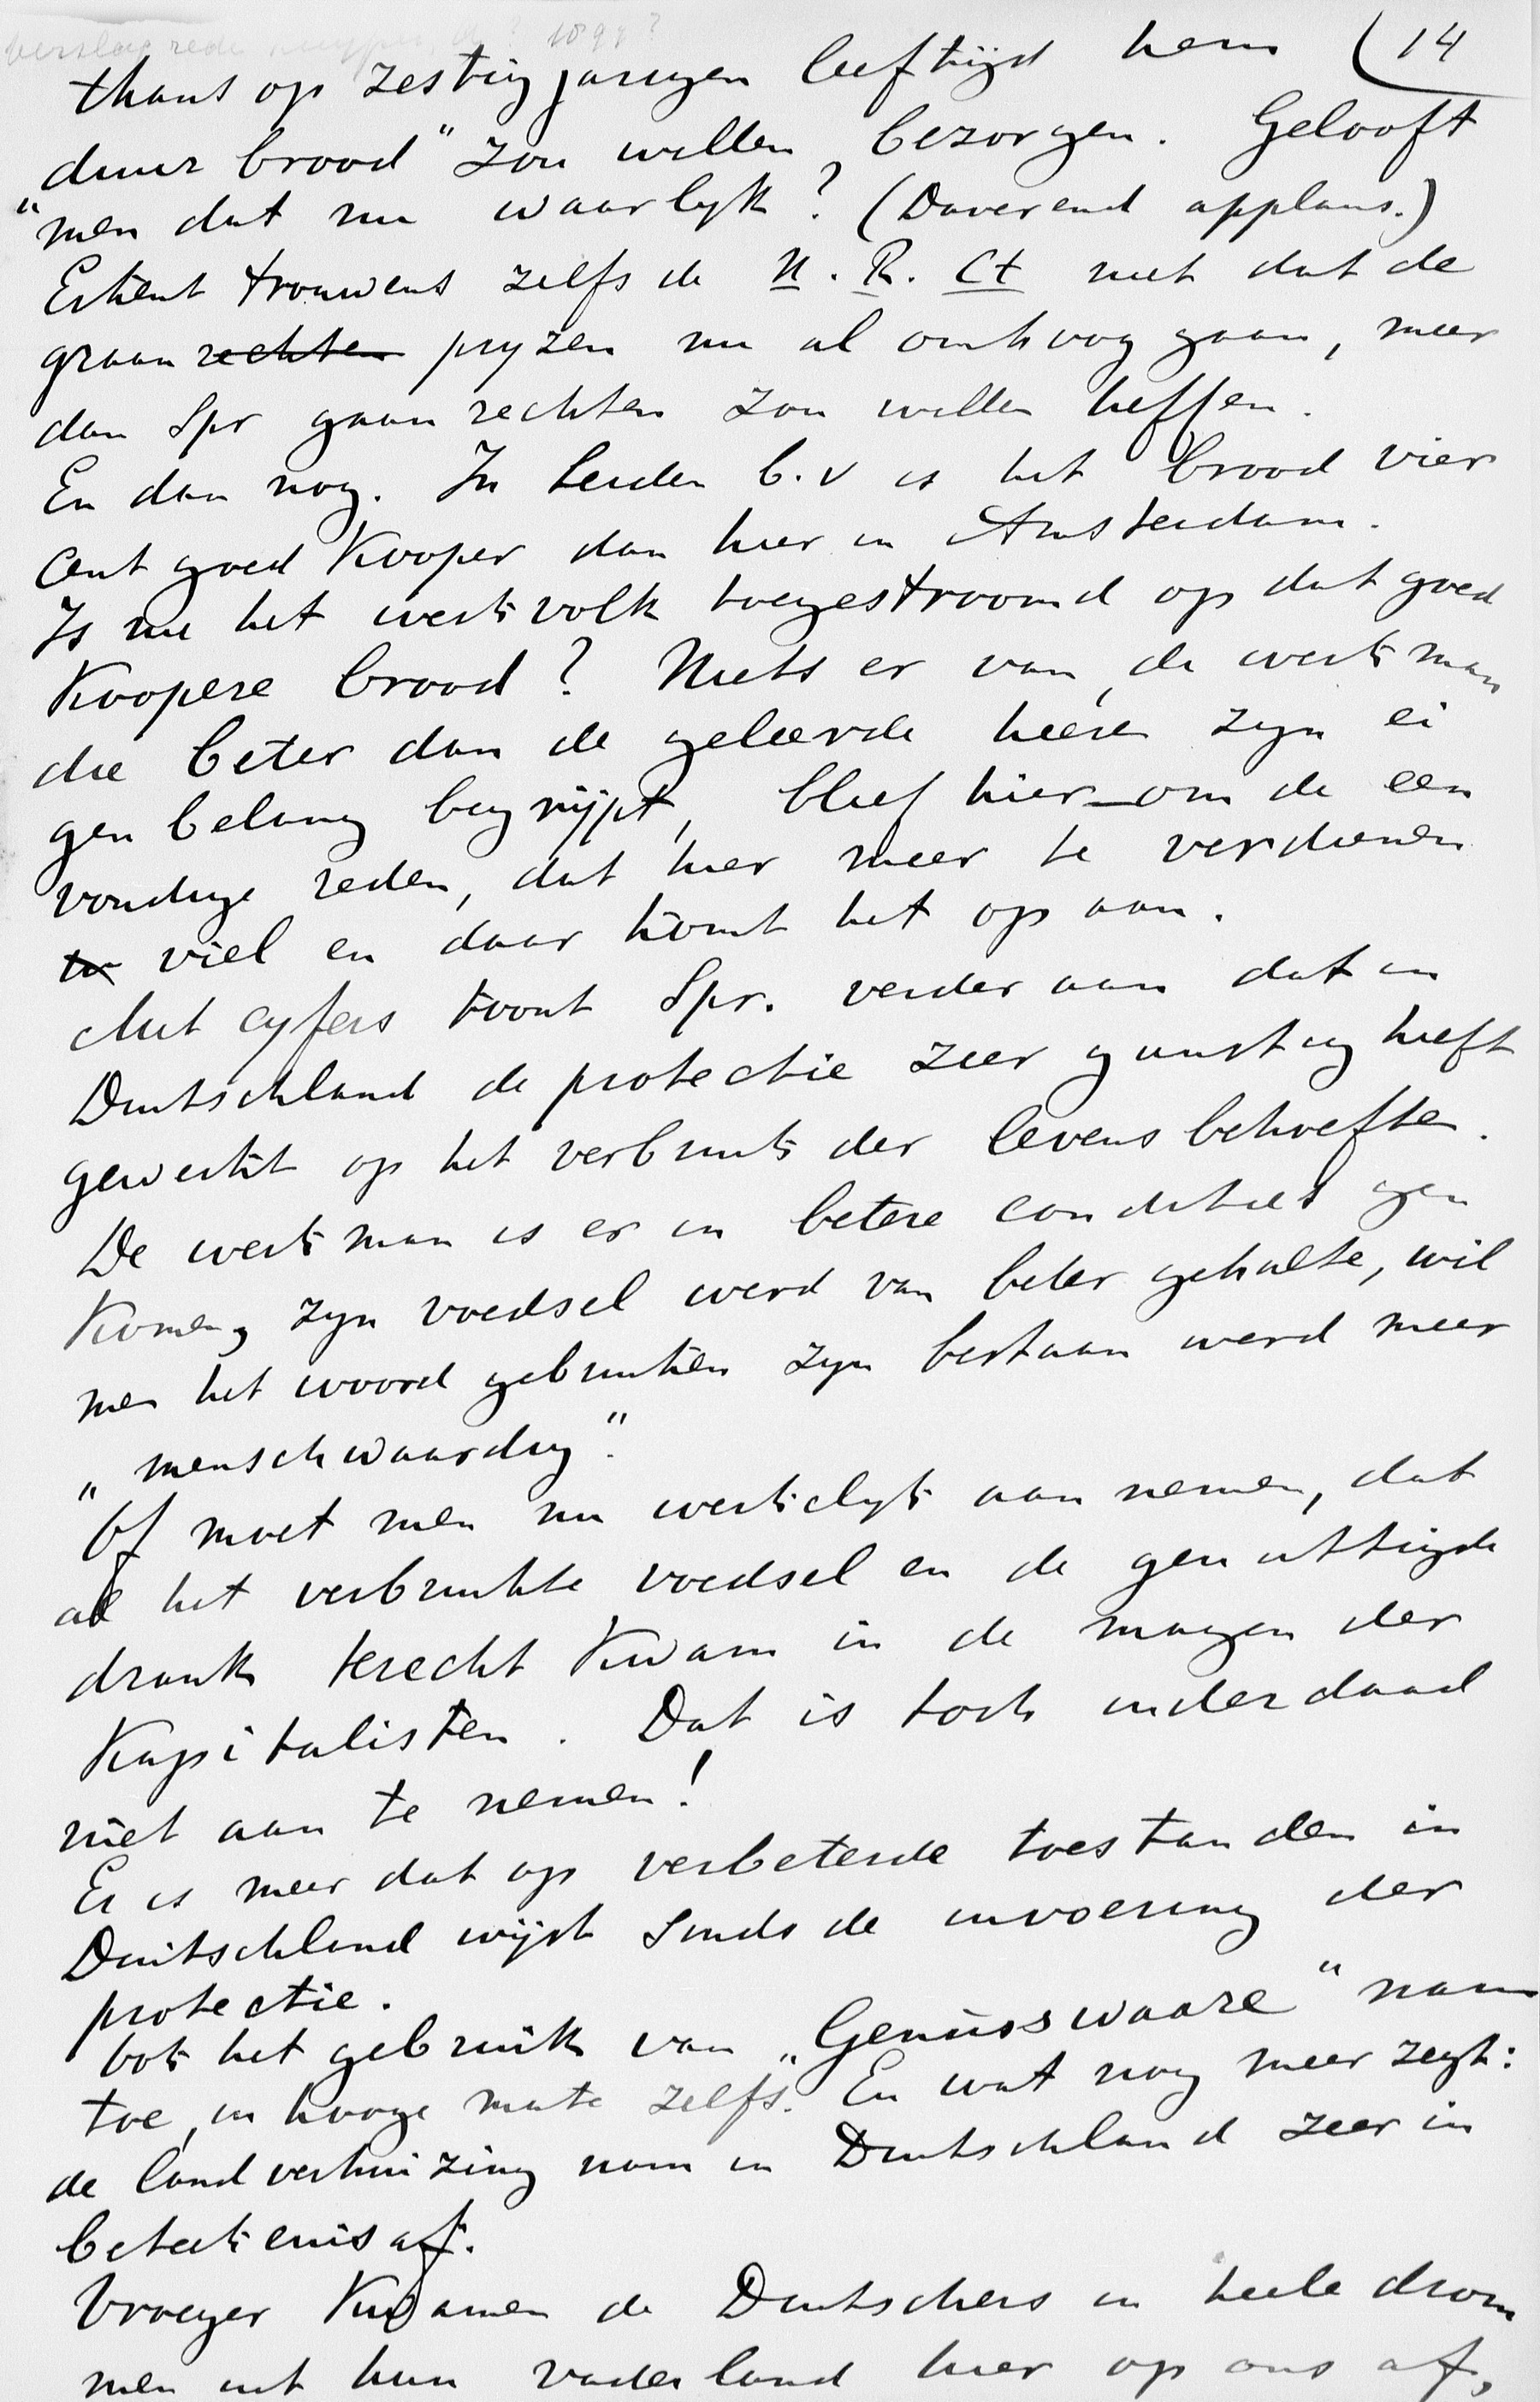 verslag rede Kuyper 1897?
14
thans op zestigjarigen leeftijd hem
„duur brood" zou willen bezorgen. Gelooft
men dat nu waarlyk? (Daverend applaus.)
Erkent trouwens zelfs de N. R. Ct niet dat de
graanrechten pryzen nu al omhoog gaan, meer
dan Spr gaanrechten zou willen heffen.
En dan nog. In Leiden b.v is het brood vier
cent goed kooper dan hier in Amsterdam.
Is nu het werkvolk toegestroomd op dat goed
koopere brood? Niets er van, de werkman
die beter dan de geleerde heeren zyn ei
gen belang begrijpt, bleef hier om de een
voudige reden, dat hier meer te verdienen
viel en daar komt het op aan.
Met cyfers toont Spr. verder aan dat in
Duitschland de protectie zeer gunstig heeft
gewerkt op het verbruik der levensbehoeften.
De werkman is er in betere condities ge
komen, zyn voedsel werd van beter gehalte, wil
men het woord gebruiken zyn bestaan werd meer
„menschwaardig".
Of moet men nu werkelyk aannemen, dat
al het verbruikte voedsel en de genuttigde
drank terecht kwam in de magen der
Kapitalisten. Dat is toch inderdaad
niet aan te nemen!
Er is meer dat op verbeterde toestanden in
Duitschland wijst sinds de invoering der
protectie.
Ook het gebruik van „Genusswaare" nam
toe, in hooge mate zelfs. En wat nog meer zegt:
de landverhuizing nam in Duitschland zeer in
beteekenis af.
Vroeger kwamen de Duitschers in heele drom
men uit hun vaderland hier op ons af,